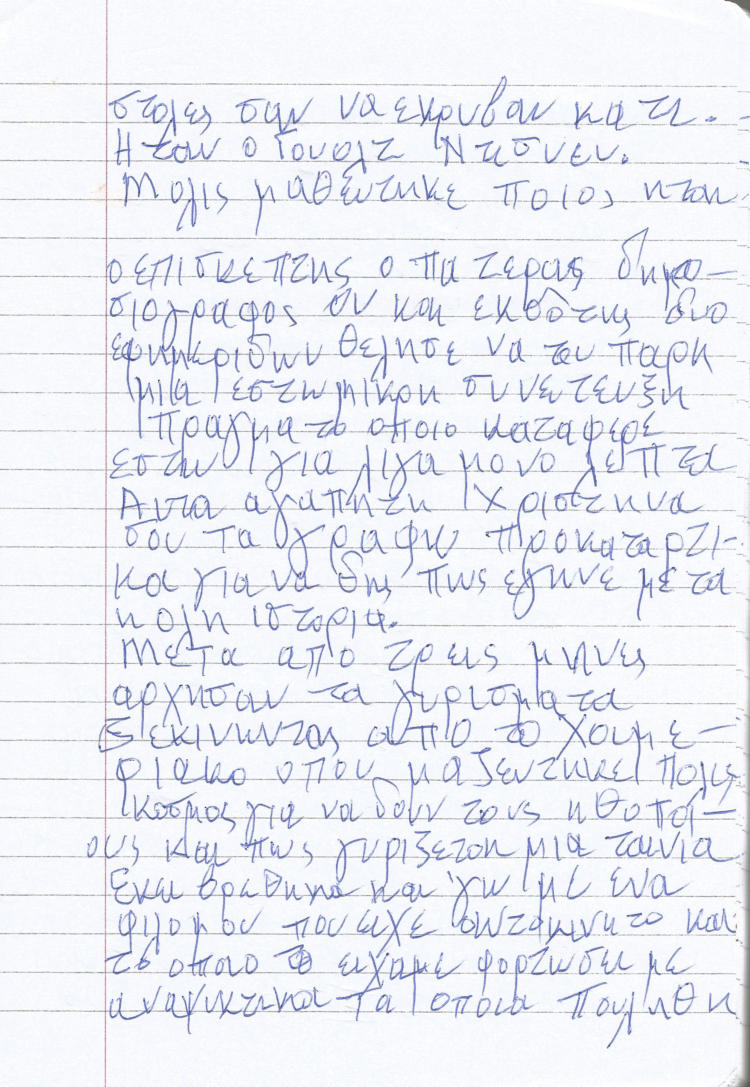 στολες σαν να εκρυβαν κατι.
Η ταν ο Γουολτ Ντισνευ.
Μολις μαθευτηκε ποιος ηταν
ο επισκεπτης ο πατερας δημο-
σιογραφος ων και εκδοτης δυο
εφημεριδων θελησε να του παρη
μια εστω μικρη συνετευξη
Πραγμα το οποιο καταφερε
εστω για λιγα μονο λεπτα
Αυτα αγαπητη Χριστηνα
σου τα γραφω προκαταρτι-
κα για να δης πως εγηνε μετα
η ολη ιστορια.
Μετα απο τρεις μηνες
αρχησαν τα γυρισματα
Ξεκινωντας απο το Χουμε-
ριακο οπου μαζευτηκε πολις
κοσμος για να δουν τους ηθοποι-
ους και πως γυριζεται μια ταινια
Εκει βρεθηκα και γω με ενα
φιλο μου που ειχε αυτοκινητο και
το οποιο το ειχαμε φορτωσει με
αναψυκτικα τα οποια πουληθη